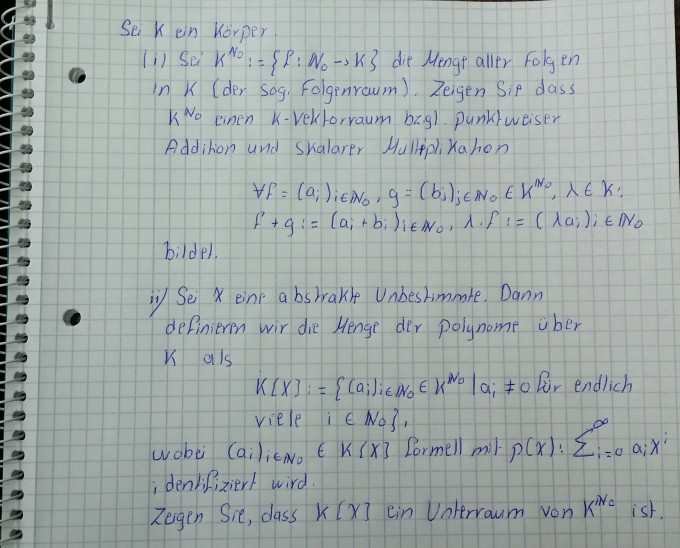 Sei K ein Körper.
(i) Sei K^ℕ₀ := {f: ℕ₀ → K} die Menge aller Folgen
in K (der sog. Folgenraum). Zeigen Sie dass
K^ℕ₀ einen K-Vektorraum bzgl. punktweiser
Addition und skalarer Multiplikation
∀f = (aᵢ)ᵢ∈ℕ₀, g = (bᵢ)ᵢ∈ℕ₀ ∈ K^ℕ₀, λ ∈ K:
f + g := (aᵢ + bᵢ)ᵢ∈ℕ₀, λ·f := (λaᵢ)ᵢ∈ℕ₀
bildet.
ii) Sei X eine abstrakte Unbestimmte. Dann
definieren wir die Menge der Polynome über
K als
K[X] := {(aᵢ)ᵢ∈ℕ₀ ∈ K^ℕ₀ | aᵢ ≠ 0 für endlich
viele i ∈ ℕ₀},
wobei (aᵢ)ᵢ∈ℕ₀ ∈ K[X] formell mit p(X): ∑_{i=0}^∞ aᵢXⁱ
identifiziert wird.
Zeigen Sie, dass K[X] ein Unterraum von K^ℕ₀ ist.